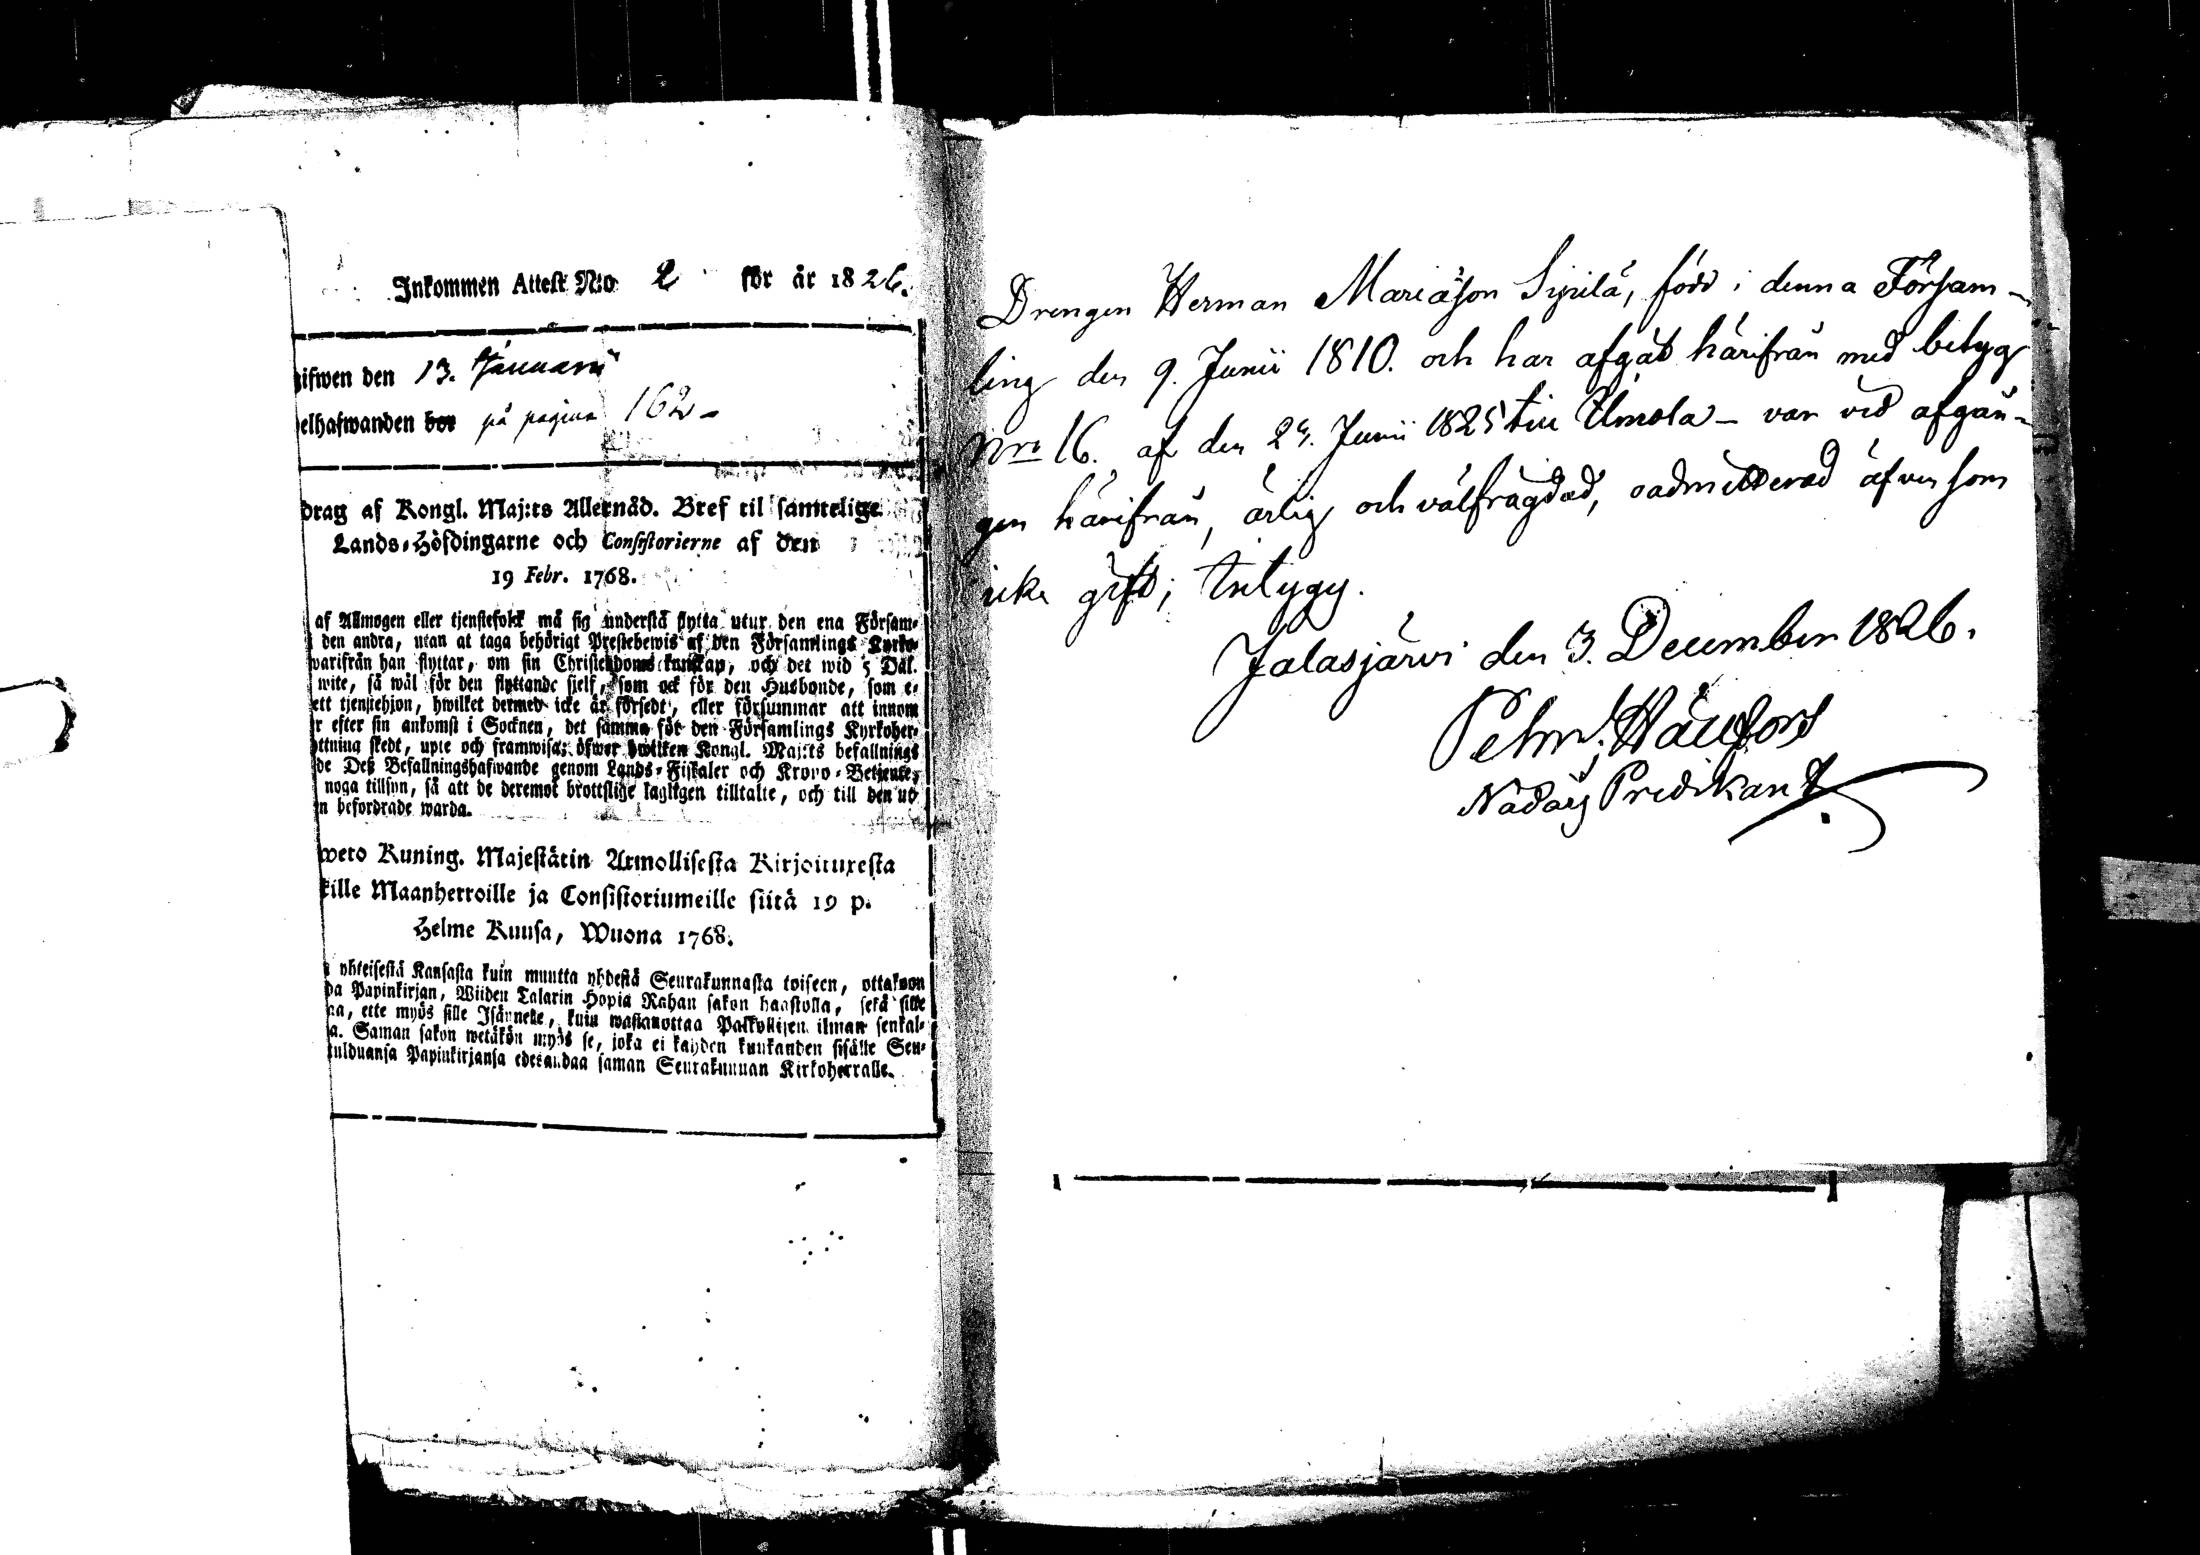 Inkommen Attest N:o 2 för år 1826.
ifwen den 13. Januarii
elhafwanden bor på pagina 162
drag af Kongl. Maj:ts Allernåd. Bref til samtelige
Lands-Höfdingarne och Consistorierne af den
19 Febr. 1768.
af Allmogen eller tjenstefolck må sig understå flytta utur den ena Försam-
den andra, utan at taga behörigt Prestebewis af den Församlings Kyrko-
warifrån han flyttar, om sin Christendoms kunskap, och det wid 5 Dal.
wite, så wäl för den flyttande sielf, som ock för den Husbonde, som e-
ett tjenstehjon, hwilket dermed icke är försedt, eller försummar att innom
r efter sin ankomst i Socknen, det samma för den Församlings Kyrkoher-
ttning skedt, upte och framwisa; öfwer hwilken Kongl. Maj:ts befallnings
de Deß Befallningshafwande genom Lands-Fiskaler och Krono-Betjente,
noga tillsyn, så att de deremot brottslige lagligen tilltalte, och till den ut
n befordrade warda.
weto Kuning. Majestätin Armollisesta Kirjoituxesta
kille Maanherroille ja Consistoriumeille siitä 19 p.
Helme Kuusa, Wuona 1768.
yhteisestä Kansasta kuin muutta yhdestä Seurakunnasta toiseen, ottakoon
da Papinkirjan, Wiiden Talarin Hopia Rahan sakon haastolla, sekä sille
na, ette myös sille Isännelle, kuin wastanottaa Palkollisen ilman senkal-
a. Saman sakon wetäkön myös se, joka ei kahden kuukauden sisälle Seu-
tulduansa Papinkirjansa edesandaa saman Seurakunnan Kirkoherralle.
Drengen Herman Mariäson Sipilä, född i denna Försam-
ling den 9. Junii 1810. och har afgåt härifrån med betyg
Nro 16. af den 24. Junii 1825 till Ilmola - var vid afgån-
gen härifrån, ärlig och välfrägdad, oadmitterad äfven som
icke gift; betygy.
Jalasjärvi den 3. December 1826.
Nådårs Predikant